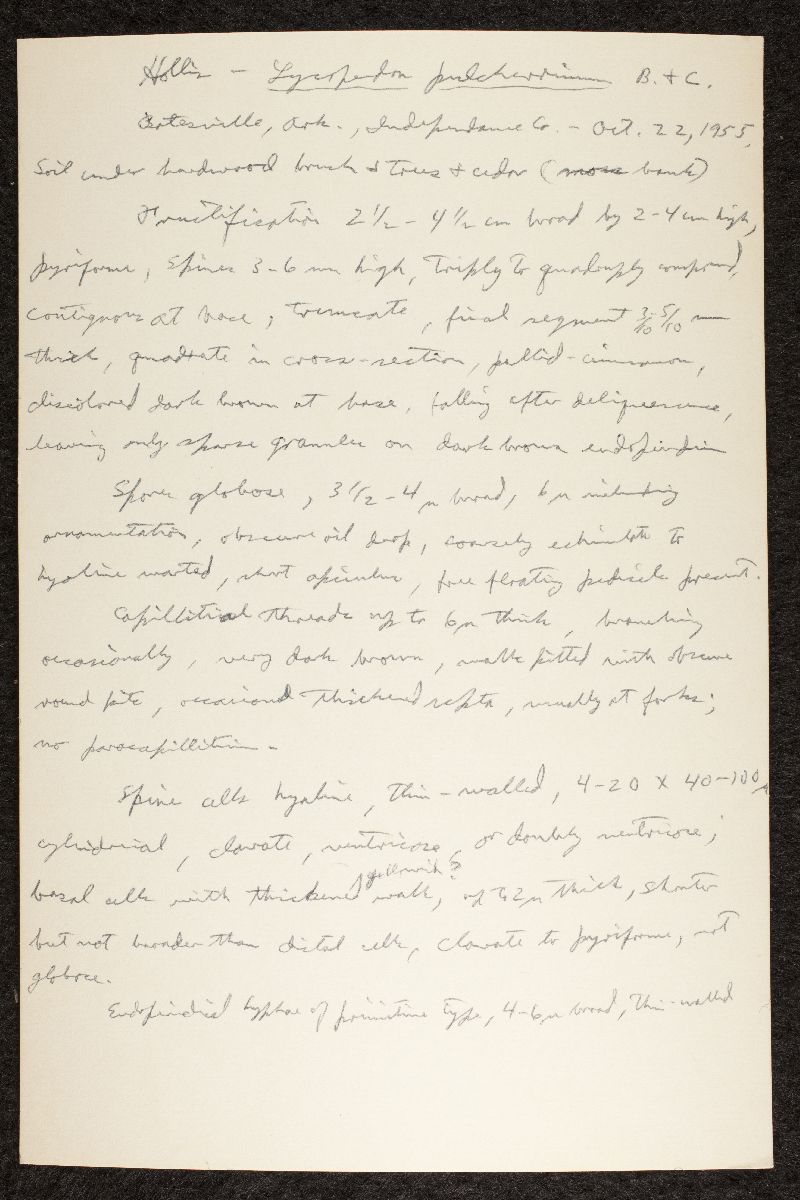 Hollis - Lycoperdon pulcherrimum B. & C.
Batesville, Ark., Independence Co. - Oct. 22, 1955,
Soil under hardwood brush & trees & cedar (moss bank)
Fructification 2 1/2 - 4 1/2 cm broad by 2-4 cm high,
pyriforme, spines 3-6 mm high, triply to quadruply compound,
contiguous at base, truncate, final segment 3/10-5/10 mm
thick, quadrate in cross-section, pallid-cinnamon,
discolored dark brown at base, falling after deliquescence,
leaving only sparse granules on dark brown endoperidium
Spores globose, 3 1/2-4 μ broad, 6 μ including
ornamentation, obscure oil drop, coarsely echinulate to
hyaline warted, short apiculus, free floating pedicels present.
Capillitial threads up to 6 μ thick, branching
occasionally, very dark brown, walls pitted with obscure
round pits, occasional thickened septa, usually at forks;
no paracapillitium -
Spine cells hyaline, thin-walled, 4-20 X 40-100 μ
cylindrical, clavate, ventricose, or doubly ventricose;
basal cells with thickened walls, up to 2 μ thick, shorter
but not broader than distal cells, clavate to pyriforme, not
globose.
Endoperidial hyphae of primitive type, 4-6 μ broad, thin-walled